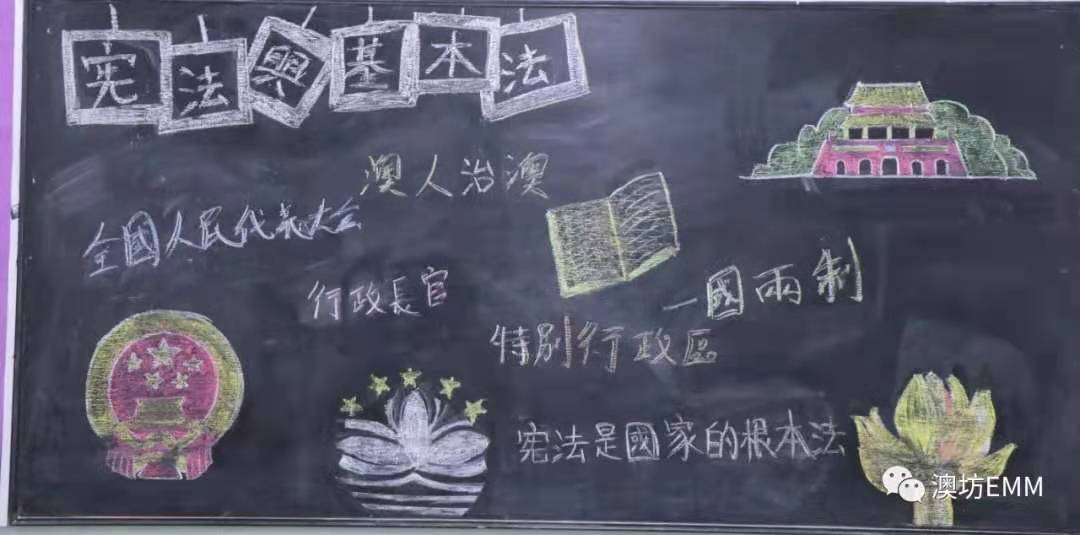 宪法與基本法
澳人治澳
全國人民代表大会
行政長官
一國兩制
特别行政區
宪法是國家的根本法
澳坊EMM